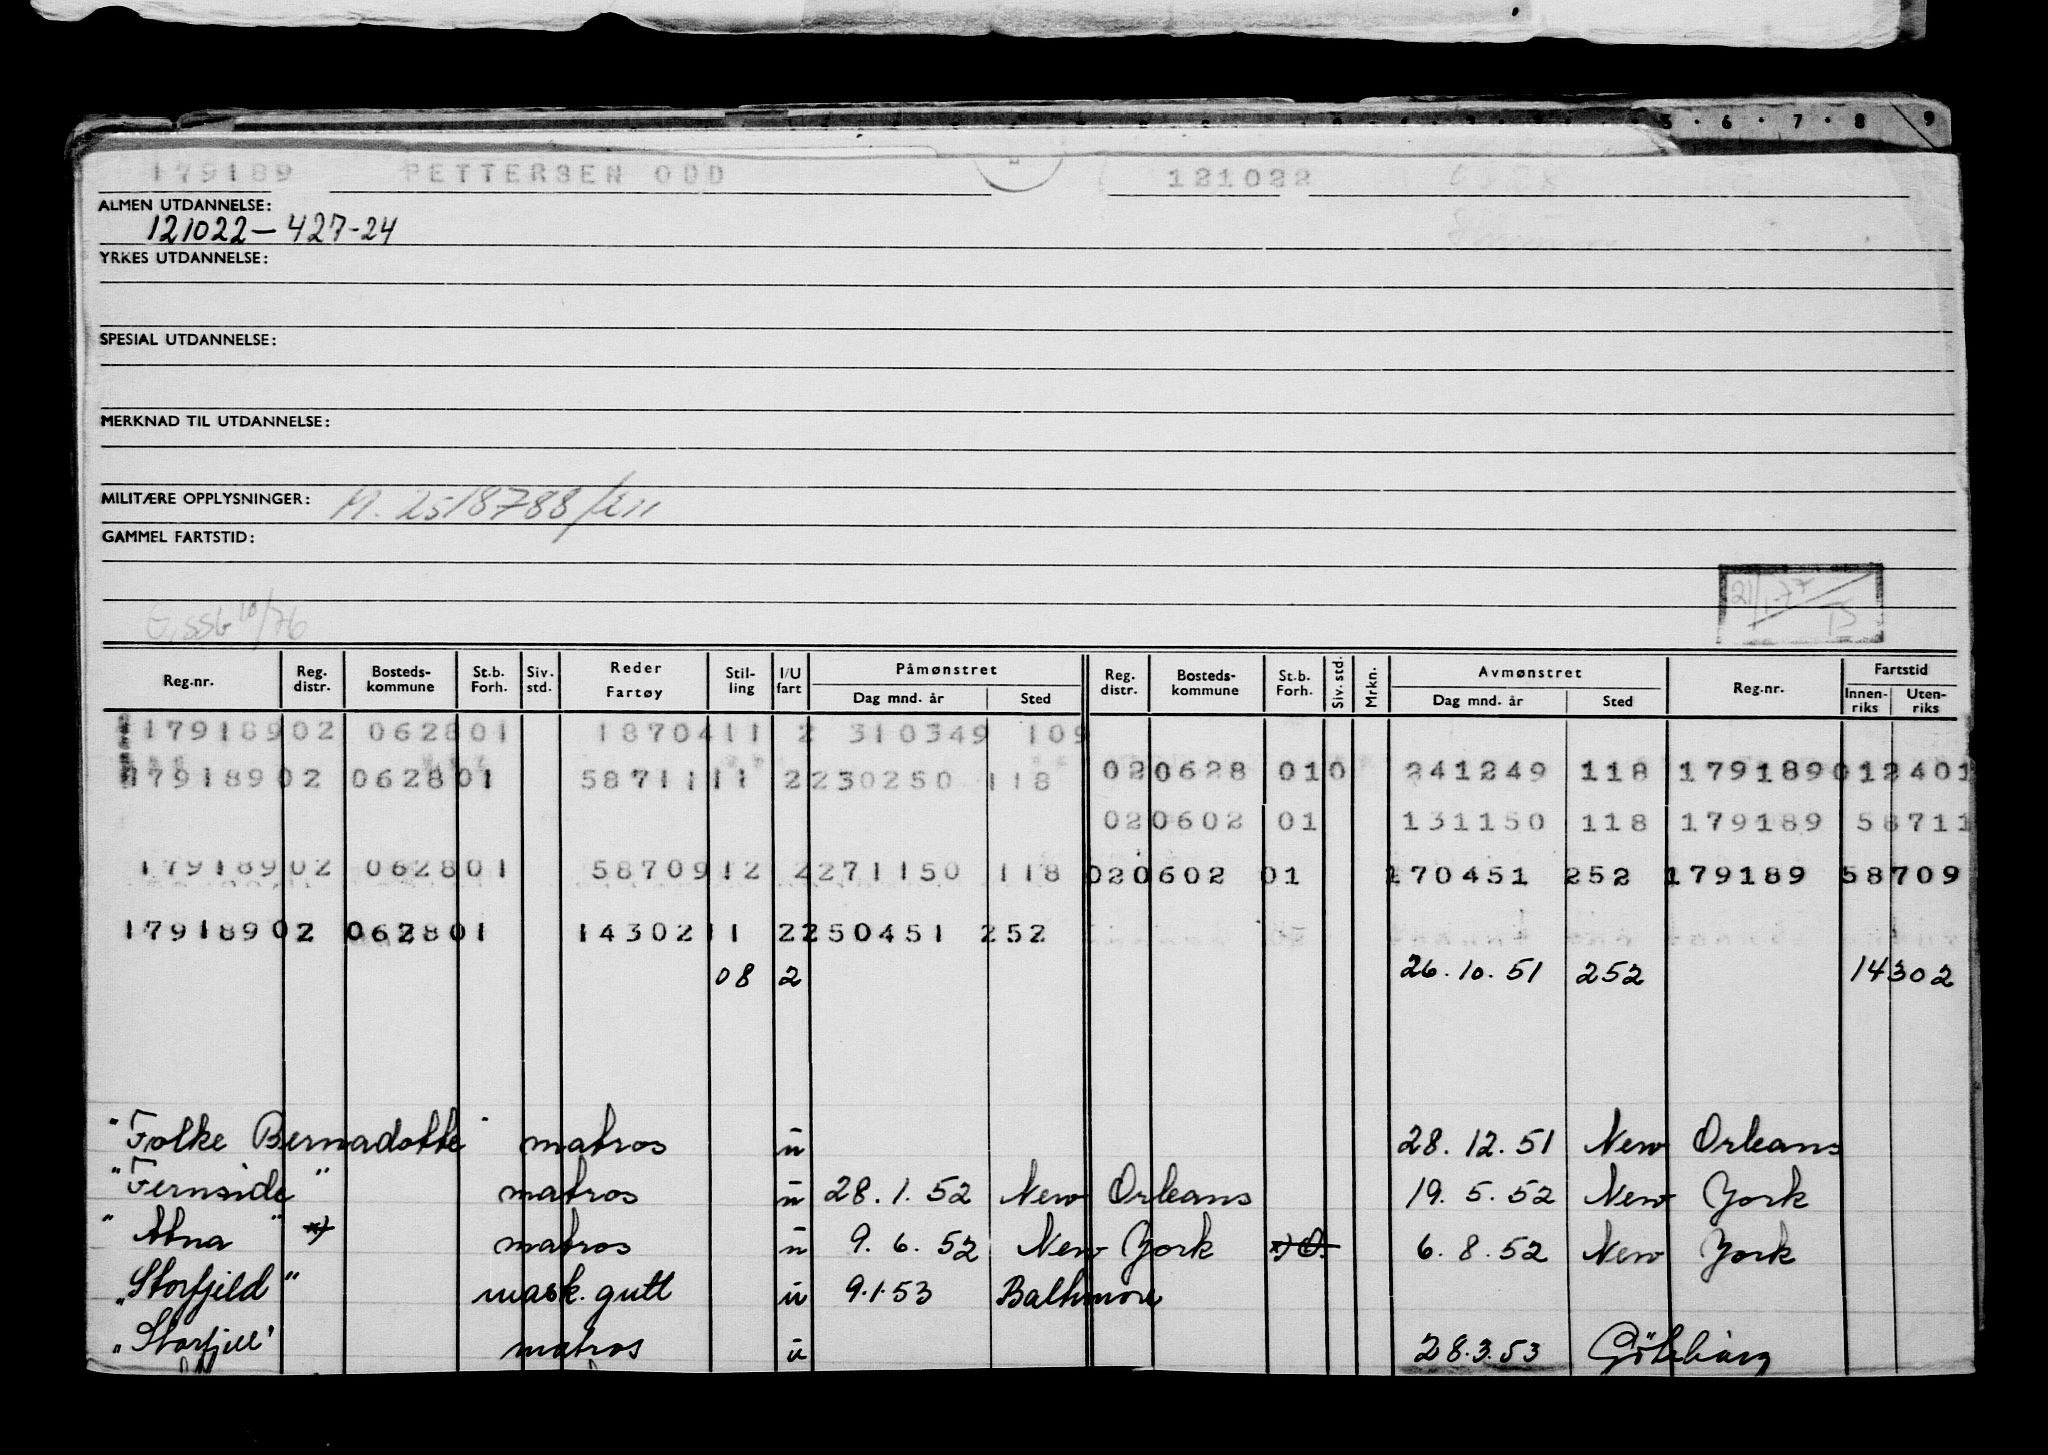 5 · 6 · 7 · 8 9
179189 PETTERSEN ODD 121022
ALMEN UTDANNELSE:
121022-427-24
YRKES UTDANNELSE:
SPESIAL UTDANNELSE:
MERKNAD TIL UTDANNELSE:
MILITÆRE OPPLYSNINGER: M. 2518788
GAMMEL FARTSTID:
21/1-77
TS
10/76
Reg.nr. Reg. distr. Bosteds-kommune St.b. Forh. Siv. std. Reder Fartøy Stil-ling I/U fart Påmønstret Dag mnd. år Sted Reg. distr. Bosteds-kommune St.b. Forh. Siv. std. Mrkn. Avmønstret Dag mnd. år Sted Reg.nr. Fartstid Innen-riks Uten-riks
179189 02 0628 01 18704 11 2 310349 109
179189 02 0628 01 58711 11 2 230250 118 02 0628 01 0 241249 118 179189 012401
02 0602 01 131150 118 179189 58711
179189 02 0628 01 58709 12 2 271150 118 02 0602 01 170451 252 179189 58709
179189 02 0628 01 14302 11 2 250451 252
08 2 26.10.51 252 14302
"Folke Bernadotte" matros u 28.12.51 New Orleans
"Fernside" matros u 28.1.52 New Orleans 19.5.52 New York
"Abna" x) matros u 9.6.52 New York x) O. 6.8.52 New York
"Storfjeld" mask.gutt u 9.1.53 Baltimore
"Storfjell" matros u 28.3.53 Göteborg